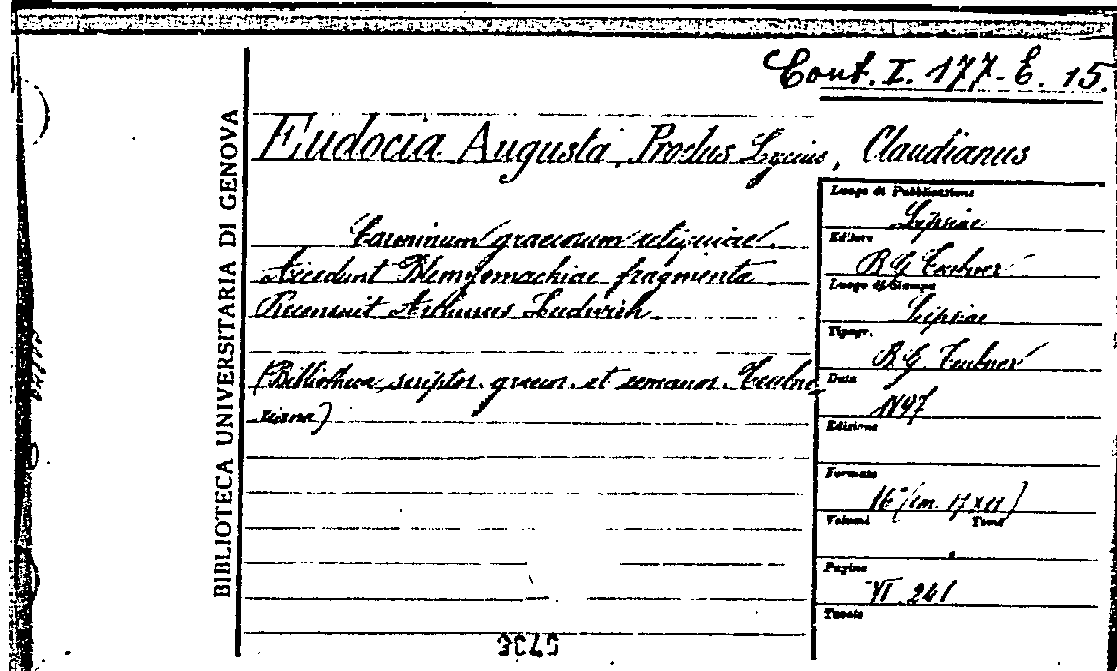 Conf. I. 177. E. 15.
BIBLIOTECA UNIVERSITARIA DI GENOVA
Eudocia Augusta, Proclus Lycius, Claudianus
Carminum graecorum reliquiae.
Accedunt Blemyomachiae fragmenta
Recensuit Arthurus Ludwich
(Bibliotheca scriptor. graecor. et romanor. Teubne
riana)
Luogo di Pubblicazione
Lipsiae
Editore
B. G. Teubner
Luogo di Stampa
Lipsiae
Tipogr.
B. G. Teubner
Data
1897
Edizione
Formato
16° (cm. 17 x 11)
Volumi Tomi
Pagine
VI 241
Tavole